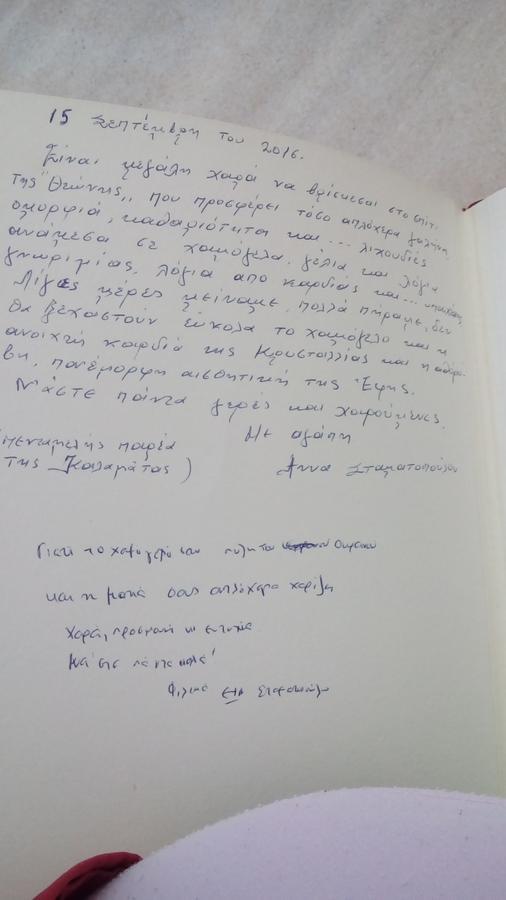 15 Σεπτέμβρη του 2016.
Είναι μεγάλη χαρά να βρίσκεσαι στο σπίτι
της "Θεώνης,, που προσφέρει τόσο απλόχερα γαλήνη,
ομορφιά, καθαριότητα και ... λιχουδιές
ανάμεσα σε χαμόγελα, γέλια και λόγια
γνωριμίας, λόγια από καρδιάς και...
Λίγες μέρες μείναμε, πολλά πήραμε, δεν
θα ξεχαστούν εύκολα το χαμόγελο και η
ανοιχτή καρδιά της Κρυσταλλίας και η αθόρυ-
βη, πανέμορφη αισθητική της Έφης.
Νάστε πάντα γερές και χαρούμενες.
Με αγάπη
(πενταμελής παρέα
της Καλαμάτας)
Άννα Σταματοπούλου
Γιατί το χαμόγελό σας
και η ματιά σας απλόχερα χαρίζει
Χαρά, προσμονή κι ευτυχία
Νά στε πάντα καλά!
Φιλικά